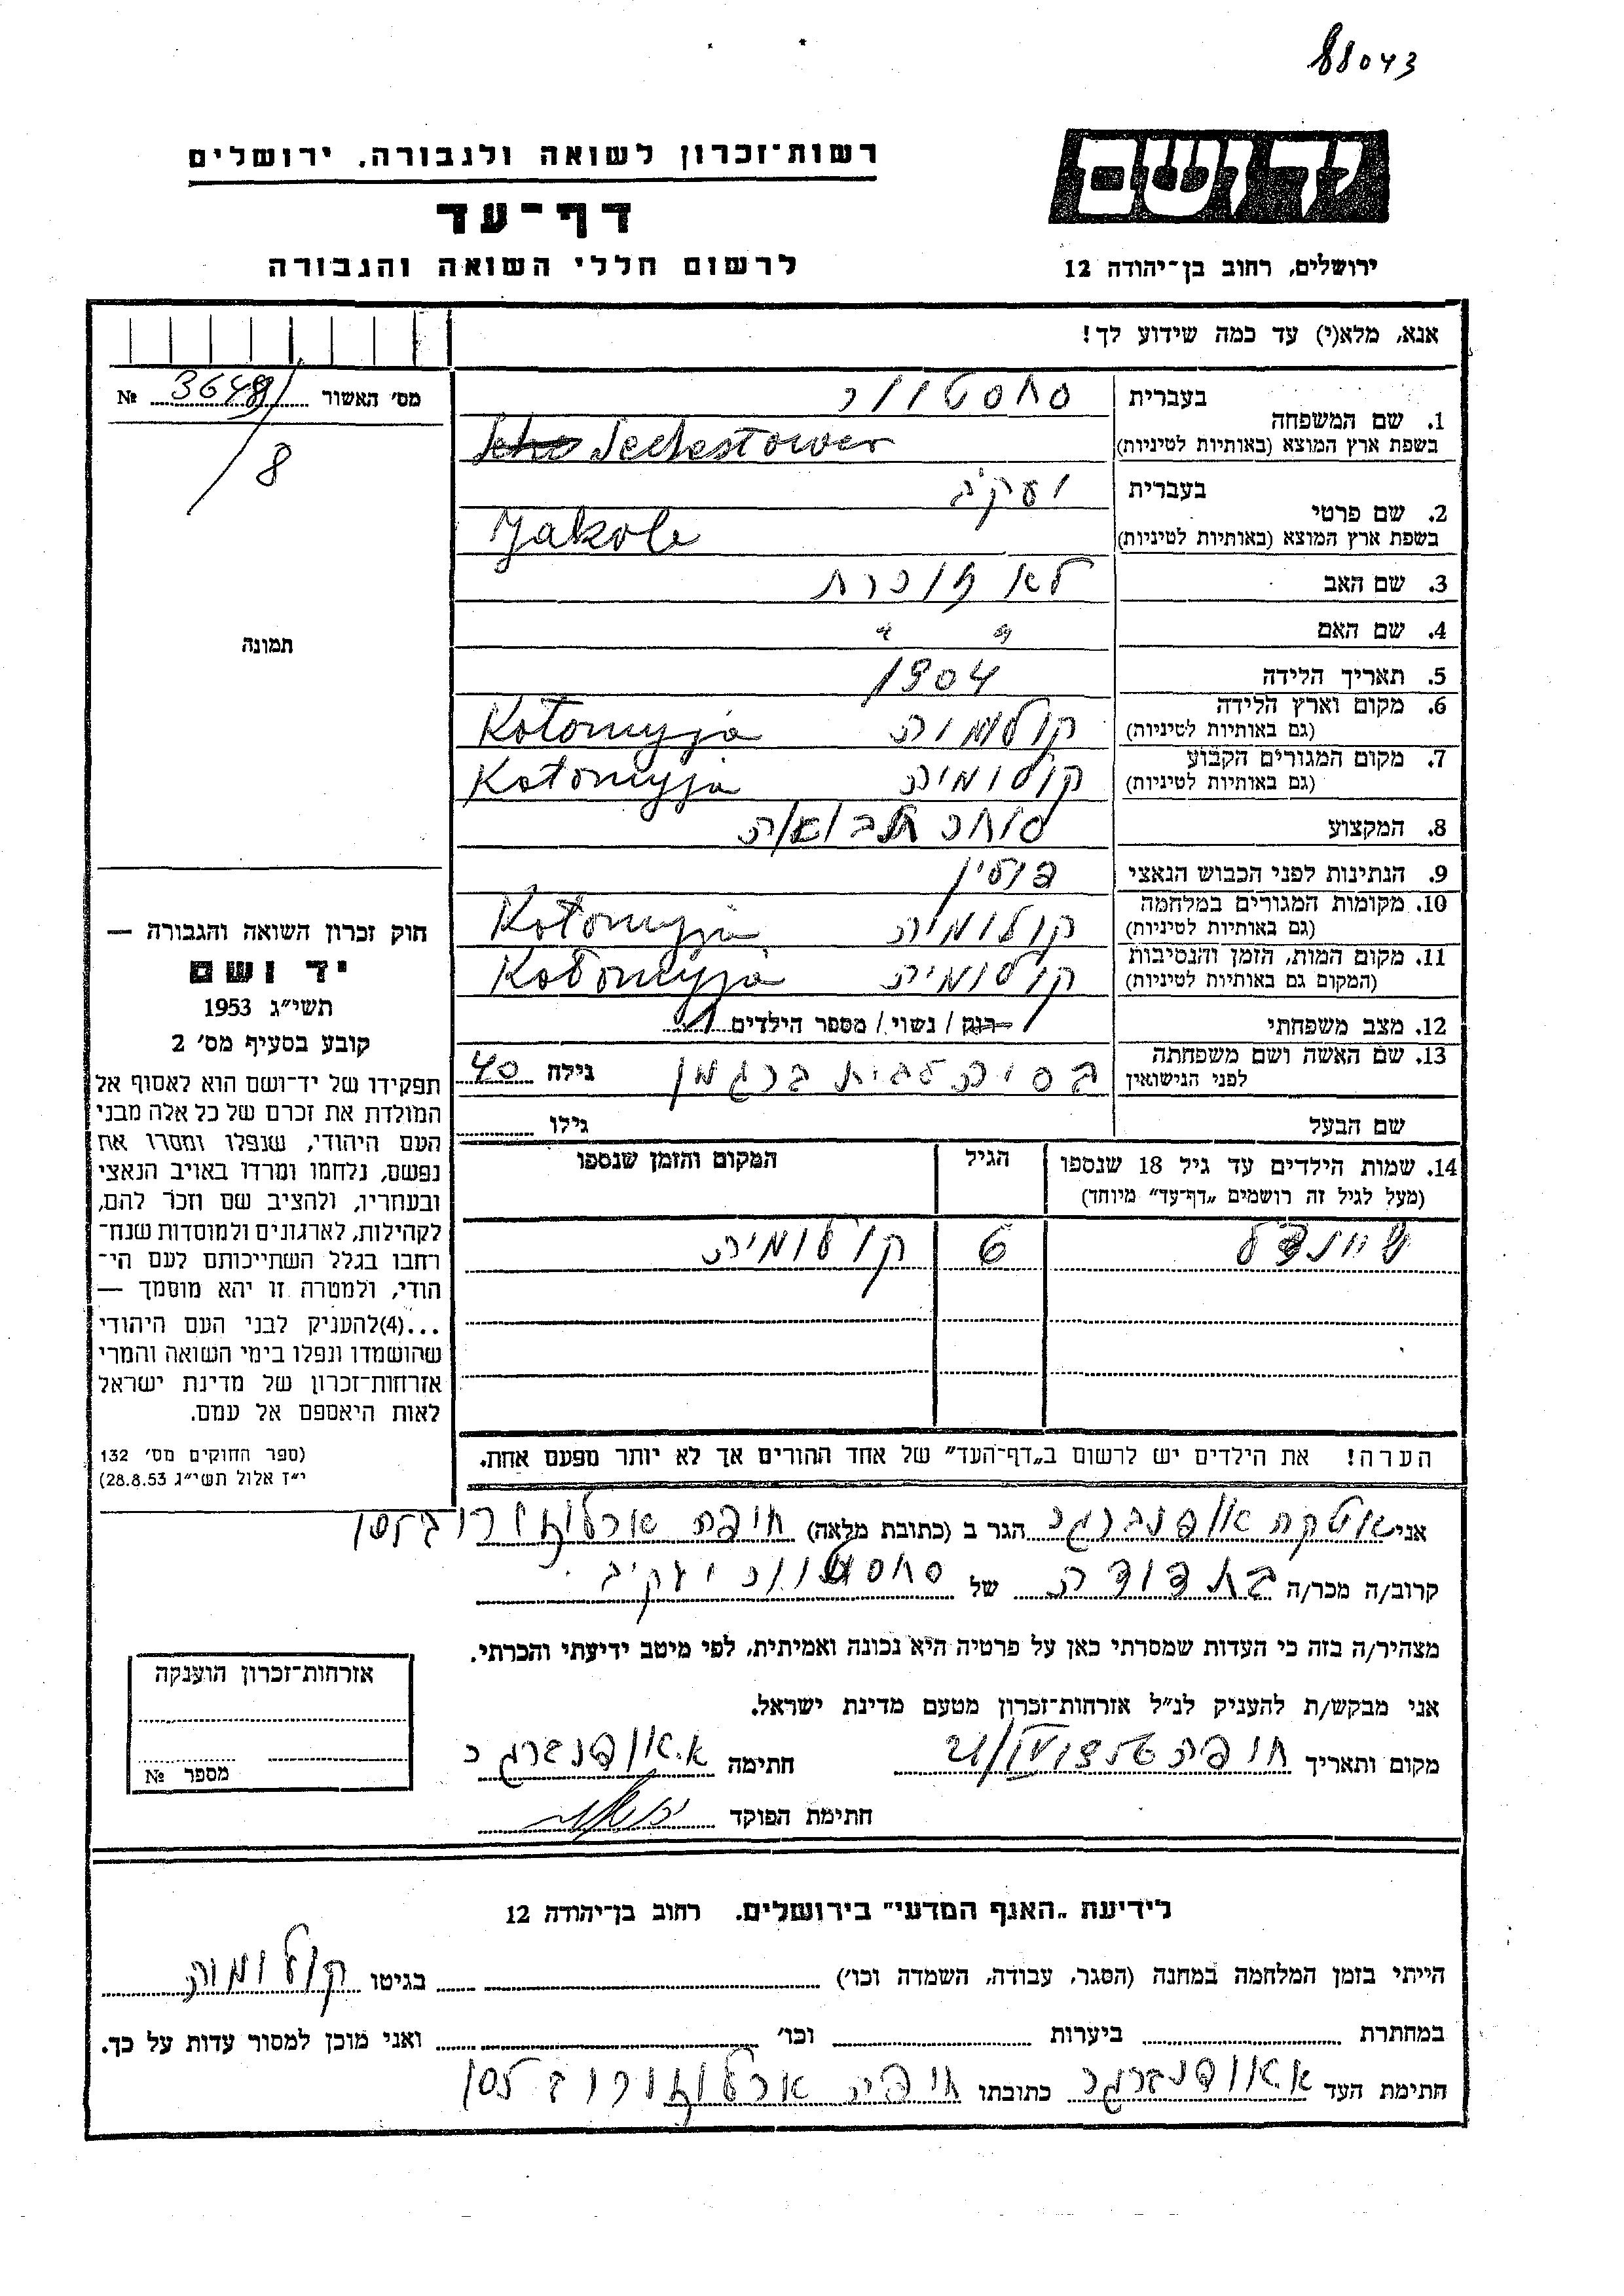 88043
רשות־זכרון לשואה ולגבורה, ירושלים
יד ושם
דף־עד
לרשום חללי השואה והגבורה
ירושלים, רחוב בן־יהודה 12
אנא, מלא(י) עד כמה שידוע לך!
מס׳ האשור № 3648
8
תמונה
1. שם המשפחה
בעברית סחסטוור
בשפת ארץ המוצא (באותיות לטיניות) Sechestower
2. שם פרטי
בעברית יעקב
בשפת ארץ המוצא (באותיות לטיניות) Jakob
3. שם האב לא זוכרת
4. שם האם " "
5. תאריך הלידה 1904
6. מקום וארץ הלידה קולומיה Kołomyja
(גם באותיות לטיניות)
7. מקום המגורים הקבוע קולומיה Kołomyja
(גם באותיות לטיניות)
8. המקצוע סוחר תבואה
9. הנתינות לפני הכבוש הנאצי פולין
10. מקומות המגורים במלחמה קולומיה Kołomyja
(גם באותיות לטיניות)
11. מקום המות, הזמן והנסיבות קולומיה Kołomyja
(המקום גם באותיות לטיניות)
12. מצב משפחתי רווק / נשוי / מספר הילדים 1
13. שם האשה ושם משפחתה לבית ברגמן גילה 40
לפני הנישואין
שם הבעל גילו
14. שמות הילדים עד גיל 18 שנספו הגיל המקום והזמן שנספו
(מעל לגיל זה רושמים „דף־עד" מיוחד)
6 קולומיה
הערה! את הילדים יש לרשום ב„דף־העד" של אחד ההורים אך לא יותר מפעם אחת.
חוק זכרון השואה והגבורה —
יד ושם
תשי״ג 1953
קובע בסעיף מס׳ 2
תפקידו של יד־ושם הוא לאסוף אל
המולדת את זכרם של כל אלה מבני
העם היהודי, שנפלו ומסרו את
נפשם, נלחמו ומרדו באויב הנאצי
ובעוזריו, ולהציב שם וזכר להם,
לקהילות, לארגונים ולמוסדות שנח־
רבו בגלל השתייכותם לעם הי־
הודי, ולמטרה זו יהא מוסמך —
...(4)להעניק לבני העם היהודי
שהושמדו ונפלו בימי השואה והמרי
אזרחות־זכרון של מדינת ישראל
לאות היאספם אל עמם.
(ספר החוקים מס׳ 132
י״ז אלול תשי״ג 28.8.53)
אני אטקה אופנברגר הגר ב (כתובת מלאה) חיפה ארלוזורוב
קרוב/ה מכר/ה בת דודה של סחסטוור יעקב
מצהיר/ה בזה כי העדות שמסרתי כאן על פרטיה היא נכונה ואמיתית, לפי מיטב ידיעתי והכרתי.
אני מבקש/ת להעניק לנ״ל אזרחות־זכרון מטעם מדינת ישראל.
מקום ותאריך חיפה 21/IV 1956 חתימה א. אופנברגר
חתימת הפוקד
אזרחות־זכרון הוענקה
מספר №
לידיעת „האגף המדעי" בירושלים. רחוב בן־יהודה 12
הייתי בזמן המלחמה במחנה (הסגר, עבודה, השמדה וכו׳) בגיטו קולומיה
במחתרת ביערות וכו׳ ואני מוכן למסור עדות על כך.
חתימת העד א. אופנברגר כתובתו חיפה ארלוזורוב